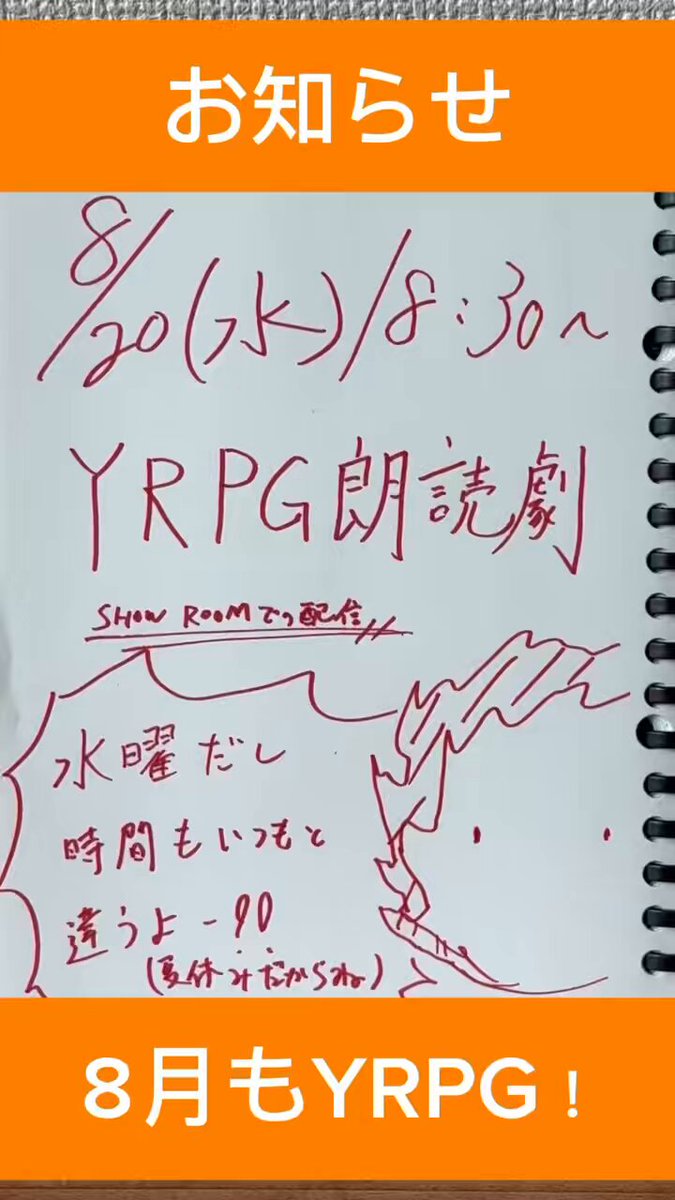 お知らせ
8/20(水)/8:30~
YRPG朗読劇
SHOW ROOMでの配信
水曜だし
時間もいつもと
違うよー
(夏休みだからね)
8月もYRPG！